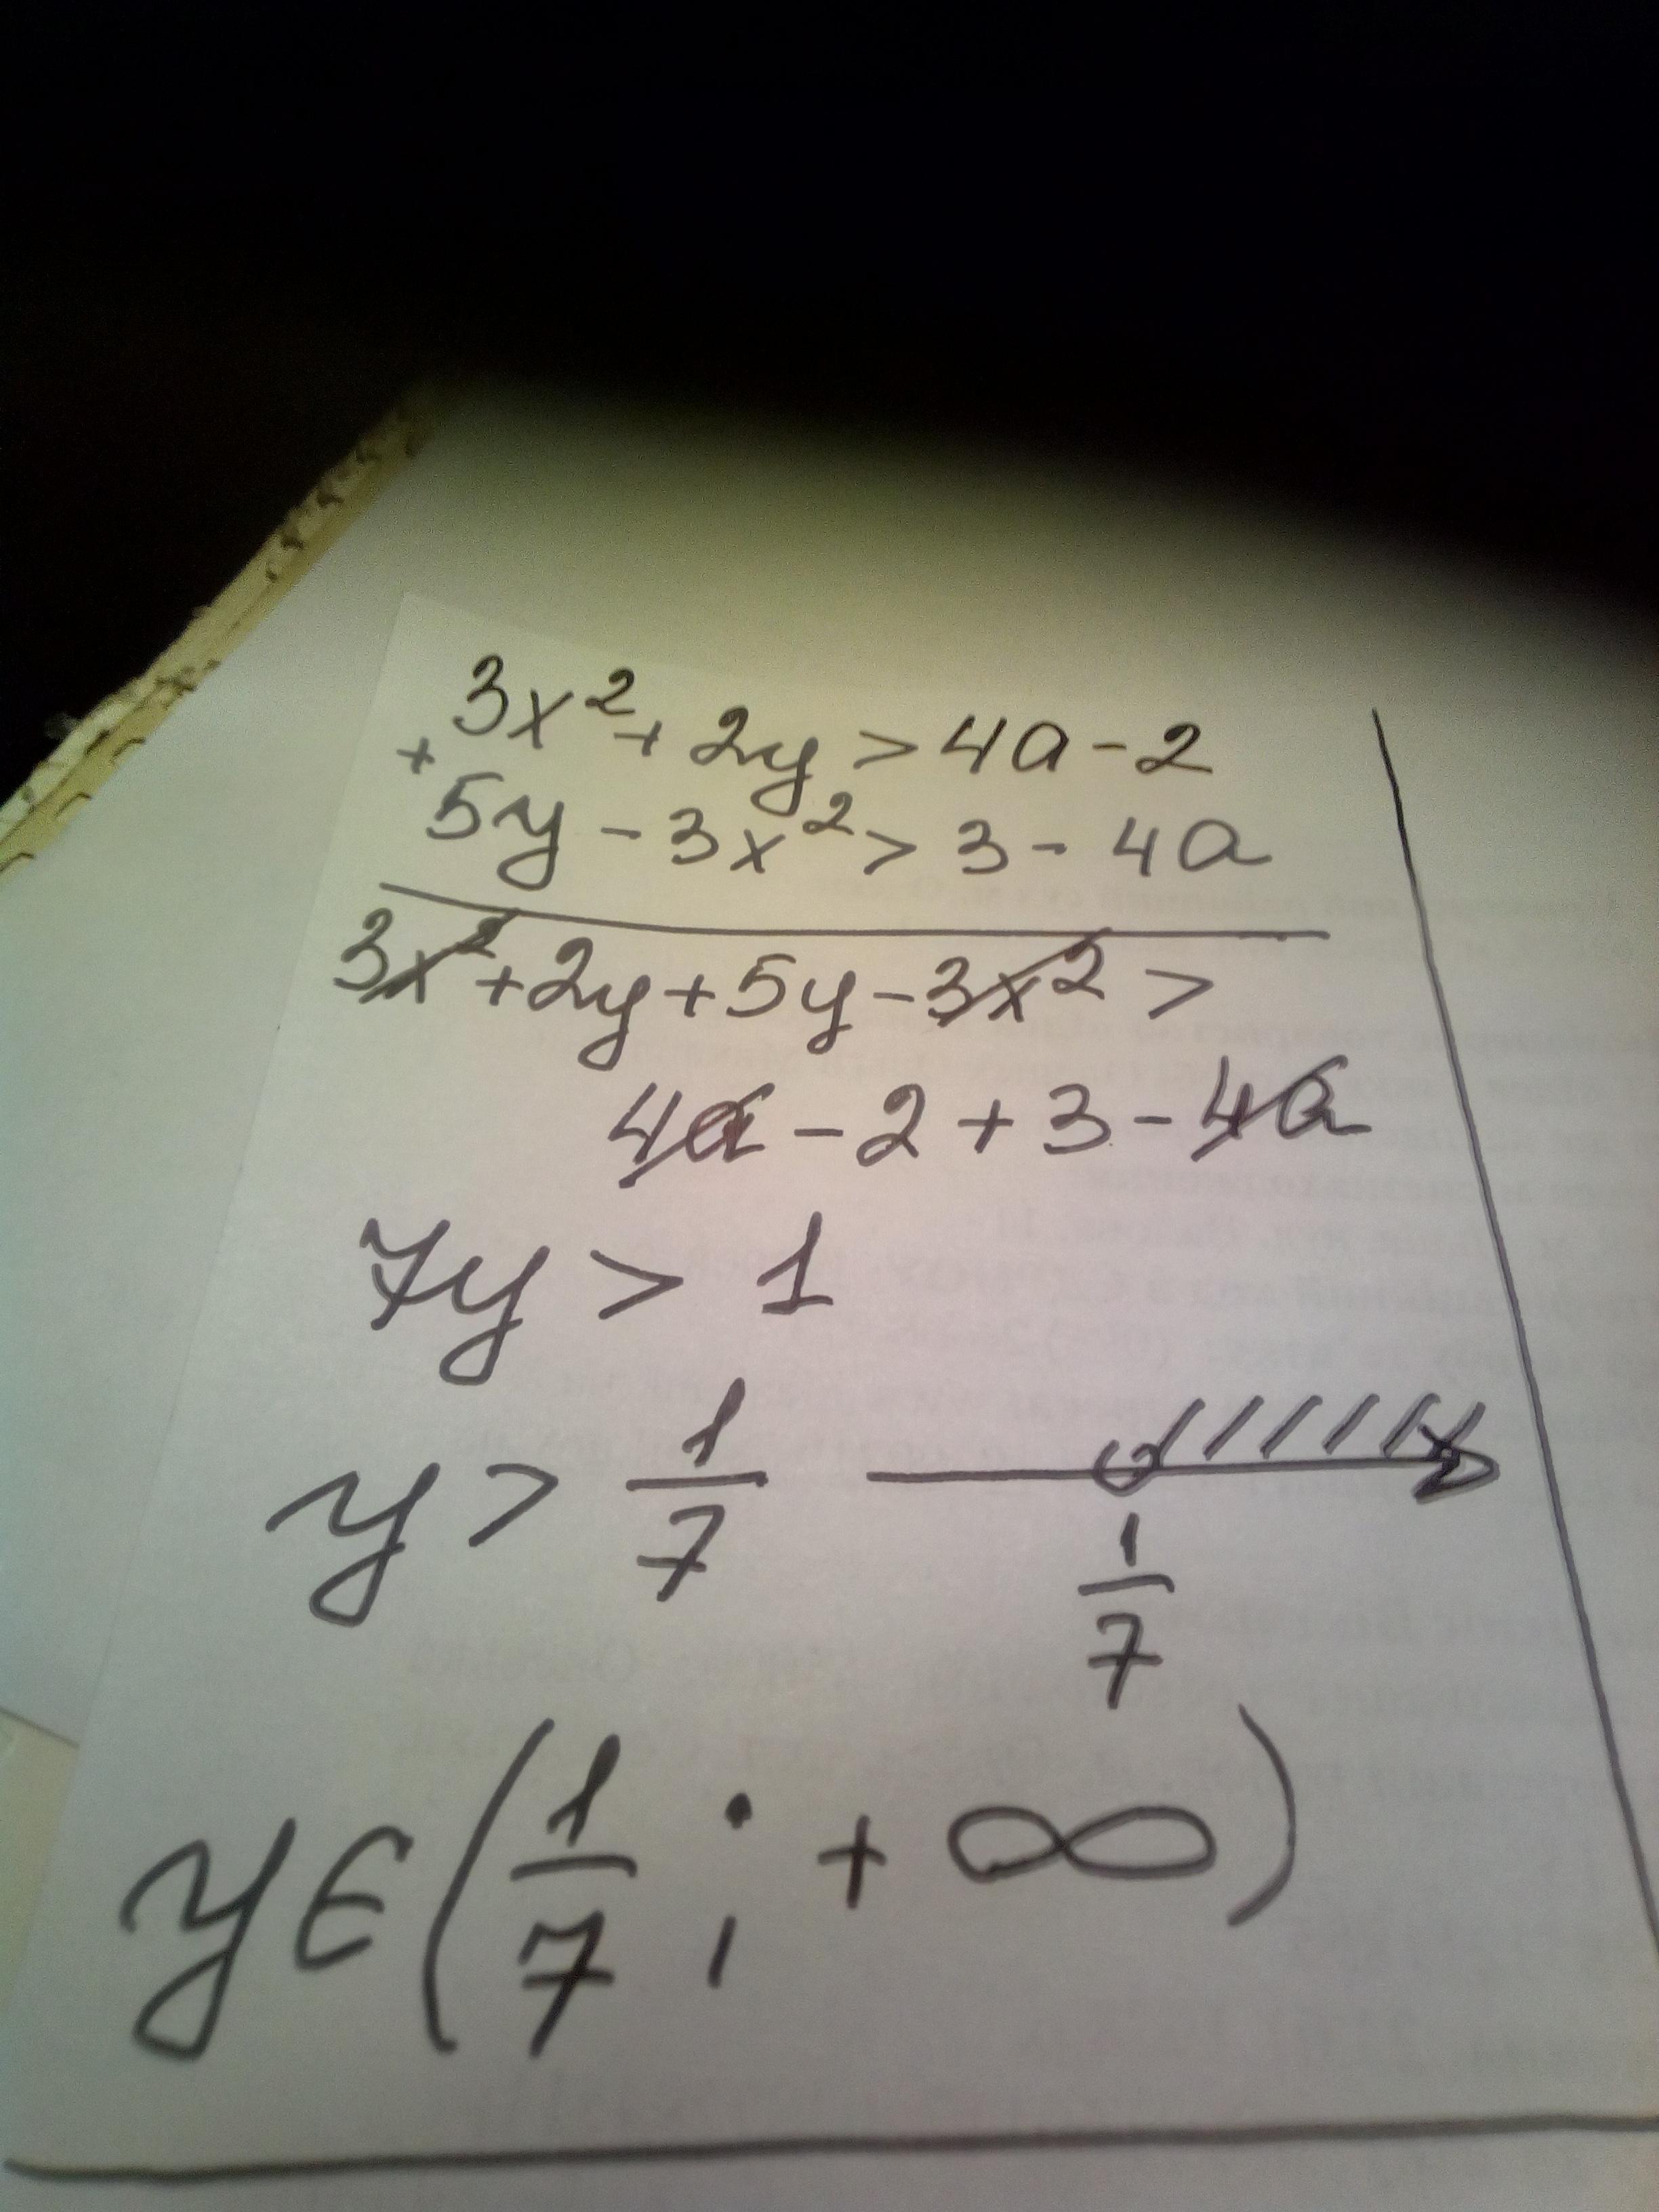 3x² + 2y > 4a - 2
+
5y - 3x² > 3 - 4a
3x² + 2y + 5y - 3x² >
4a - 2 + 3 - 4a
7y > 1
y > 1/7
1/7
y ∈ (1/7 ; + ∞)